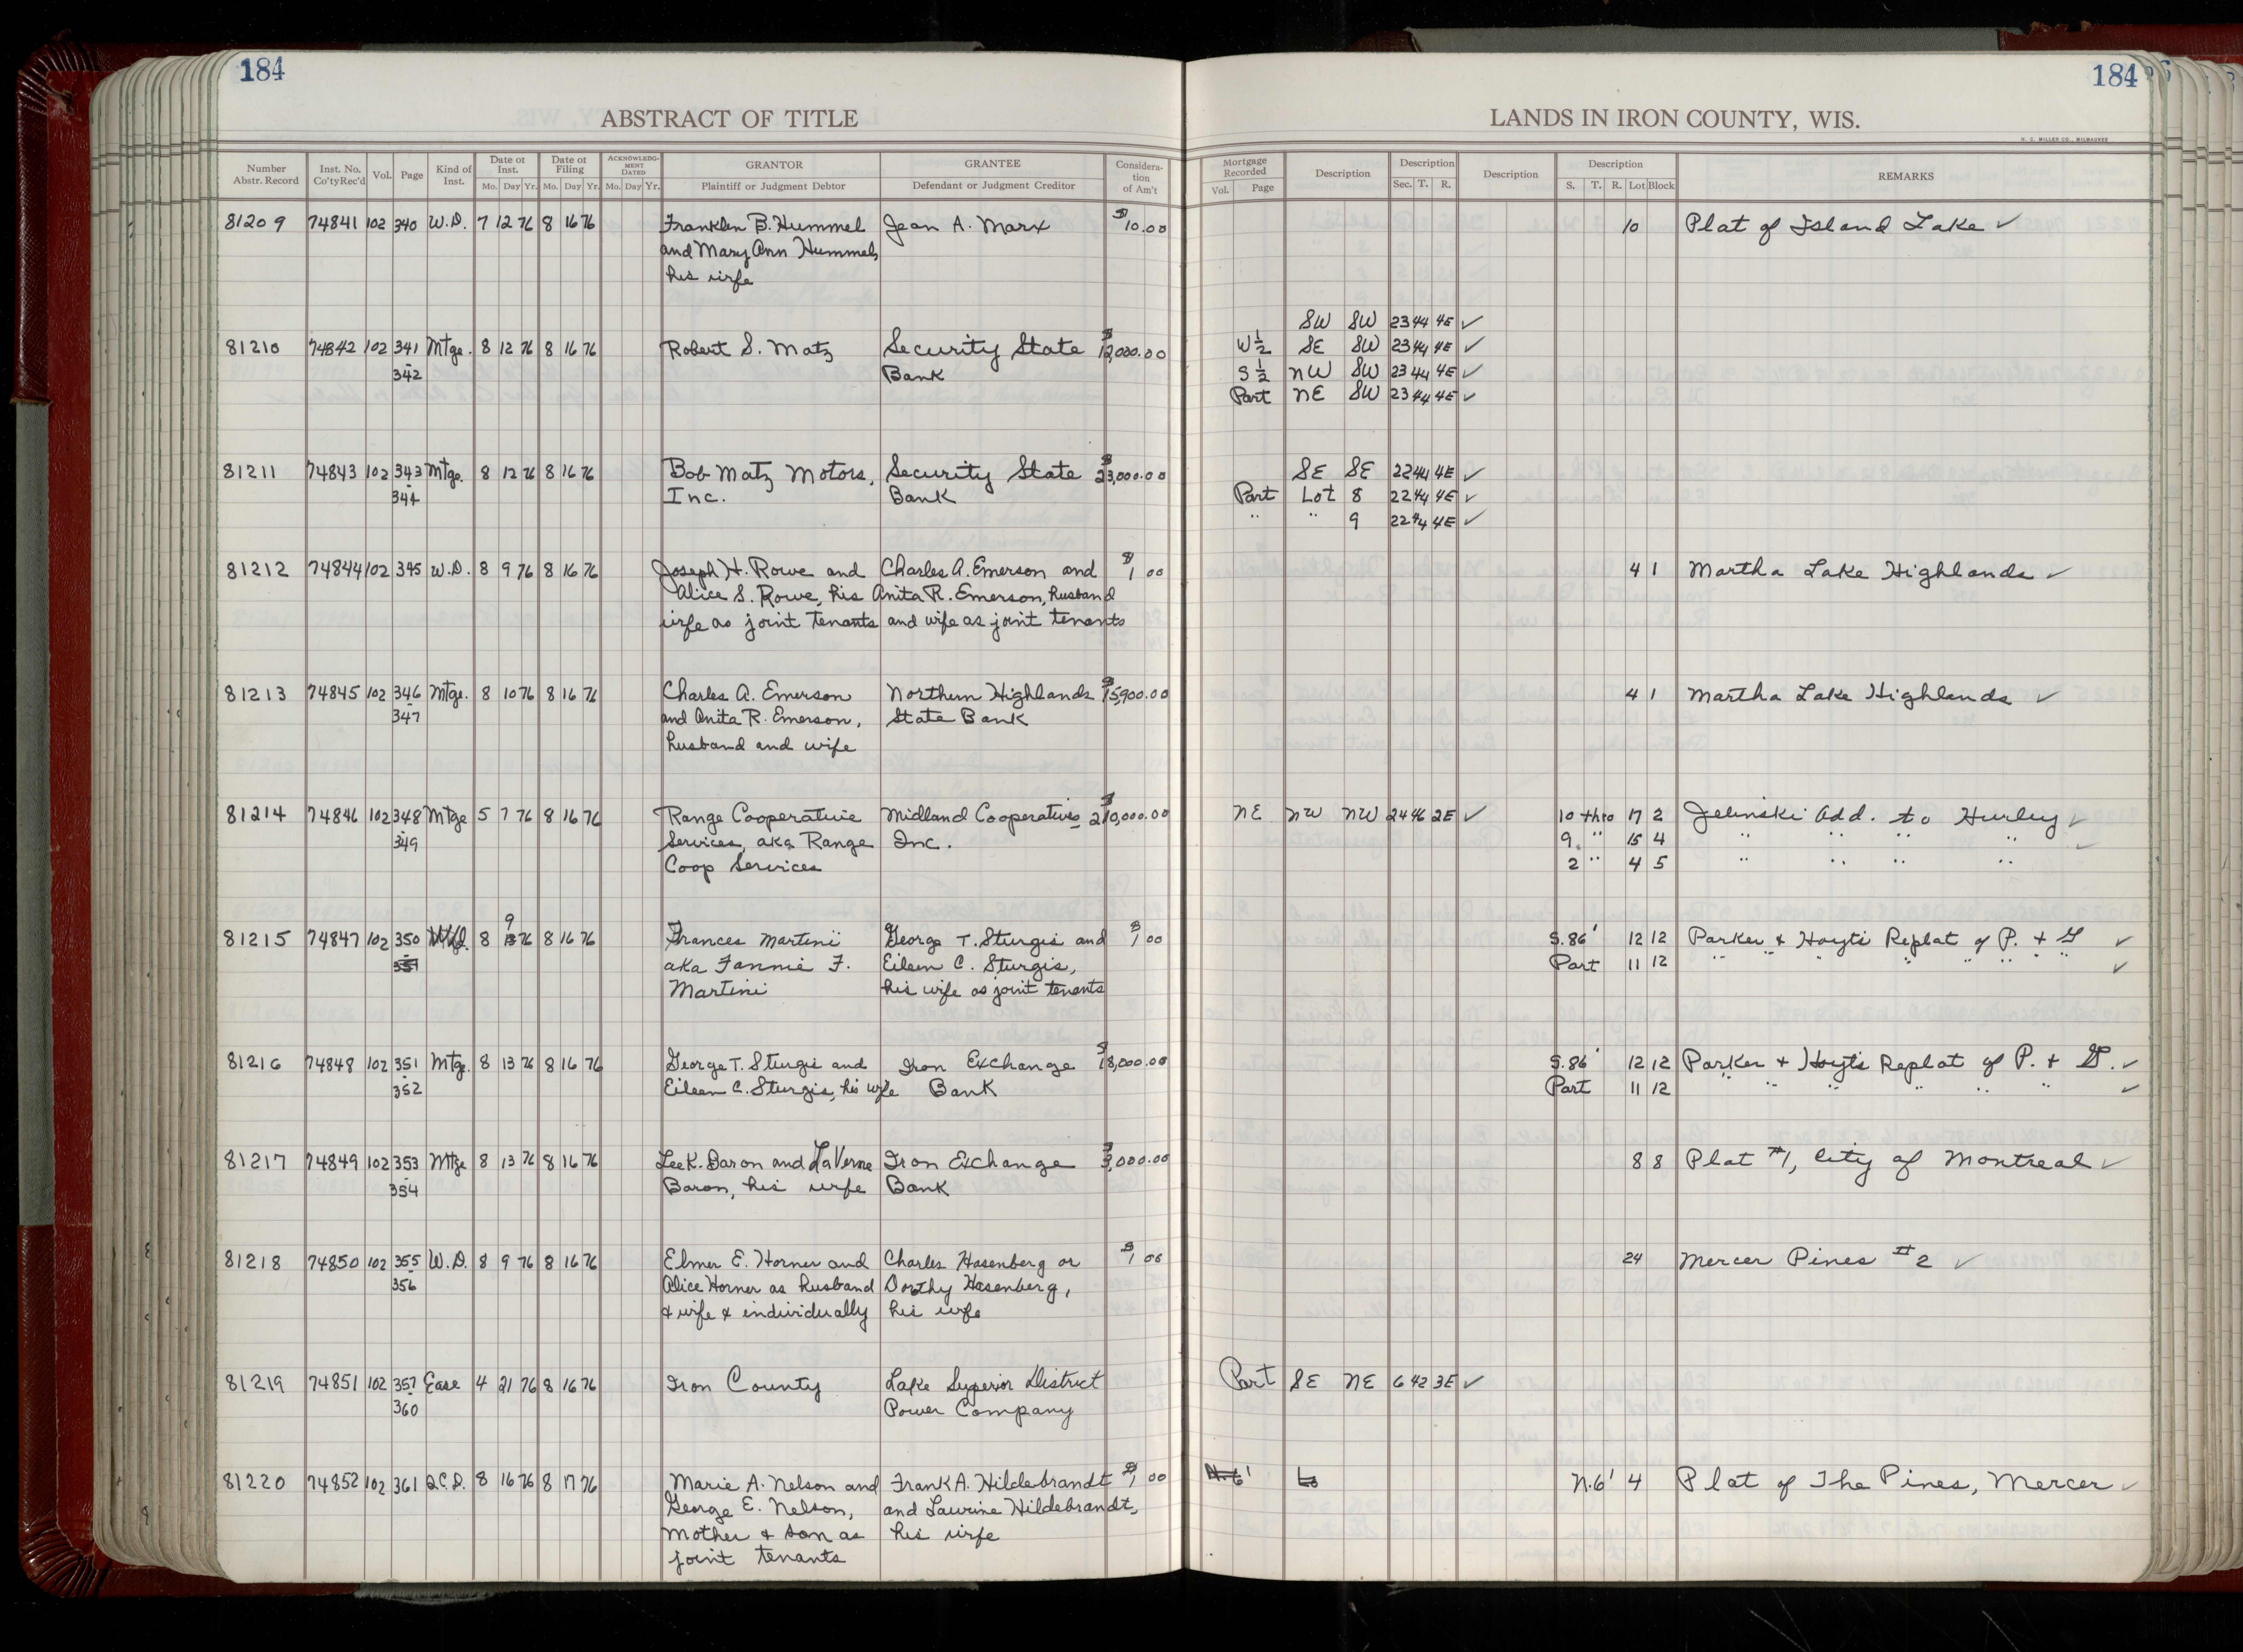 184
184
ABSTRACT OF TITLE
LANDS IN IRON COUNTY, WIS.
H. C. MILLER CO., MILWAUKEE
Number Abstr. Record
Inst. No. Co'ty Rec'd
Vol.
Page
Kind of Inst.
Date of Inst.
Mo. Day Yr.
Date of Filing
Mo. Day Yr.
ACKNOWLEDGMENT DATED
Mo. Day Yr.
GRANTOR
Plaintiff or Judgment Debtor
GRANTEE
Defendant or Judgment Creditor
Consideration of Am't
Mortgage Recorded
Vol. Page
Description
Description
Sec. T. R.
Description
Description
S. T. R. Lot Block
REMARKS
81209 74841 102 340 W.D. 7 12 76 8 16 76 Franklin B. Hummel Jean A. Marx $10.00 10 Plat of Island Lake ✓
and Mary Ann Hummel,
his wife
SW SW 23 44 4E ✓
81210 74842 102 341 Mtge. 8 12 76 8 16 76 Robert S. Matz Security State $12,000.00 W½ SE SW 23 44 4E ✓
- 342 Bank S½ NW SW 23 44 4E ✓
Part NE SW 23 44 4E ✓
81211 74843 102 343 Mtge. 8 12 76 8 16 76 Bob Matz Motors, Security State $23,000.00 SE SE 22 44 4E ✓
- 344 Inc. Bank Part Lot 8 22 44 4E ✓
" " 9 22 44 4E ✓
81212 74844 102 345 W.D. 8 9 76 8 16 76 Joseph H. Rowe and Charles A. Emerson and $1 00 4 1 Martha Lake Highlands ✓
Alice S. Rowe, his Anita R. Emerson, husband
wife as joint tenants and wife as joint tenants
81213 74845 102 346 Mtge. 8 10 76 8 16 76 Charles A. Emerson Northern Highlands $15,900.00 4 1 Martha Lake Highlands ✓
- 347 and Anita R. Emerson, State Bank
husband and wife
81214 74846 102 348 Mtge 5 7 76 8 16 76 Range Cooperative Midland Cooperatives $210,000.00 NE NW NW 24 46 2E ✓ 10 thro 17 2 Jelinski Add. to Hurley ✓
- 349 Services, aka Range Inc. 9 " 15 4 " " " " ✓
Coop Services 2 " 4 5 " " " "
81215 74847 102 350 8 9 76 8 16 76 Frances Martini George T. Sturgis and $1 00 S.86' 12 12 Parker & Hoyt's Replat of P. & G ✓
aka Fannie F. Eileen C. Sturgis, Part 11 12 " " " " " " " ✓
Martini his wife as joint tenants
81216 74848 102 351 Mtge. 8 13 76 8 16 76 George T. Sturgis and Iron Exchange $18,000.00 S.86' 12 12 Parker & Hoyt's Replat of P. & G. ✓
- 352 Eileen C. Sturgis, his wife Bank Part 11 12 " " " " " " ✓
81217 74849 102 353 Mtge 8 13 76 8 16 76 Lee K. Baron and LaVerne Iron Exchange $3,000.00 8 8 Plat #1, City of Montreal ✓
- 354 Baron, his wife Bank
81218 74850 102 355 W.D. 8 9 76 8 16 76 Elmer E. Horner and Charles Hasenberg or $1 00 24 Mercer Pines #2 ✓
- 356 Alice Horner as husband Dorthy Hasenberg,
& wife & individually his wife
81219 74851 102 357 Ease 4 21 76 8 16 76 Iron County Lake Superior District Part SE NE 6 42 3E ✓
- 360 Power Company
81220 74852 102 361 Q.C.D. 8 16 76 8 17 76 Marie A. Nelson and Frank A. Hildebrandt $1 00 N.6' 4 Plat of The Pines, Mercer ✓
George E. Nelson, and Laurine Hildebrandt,
Mother & son as his wife
joint tenants